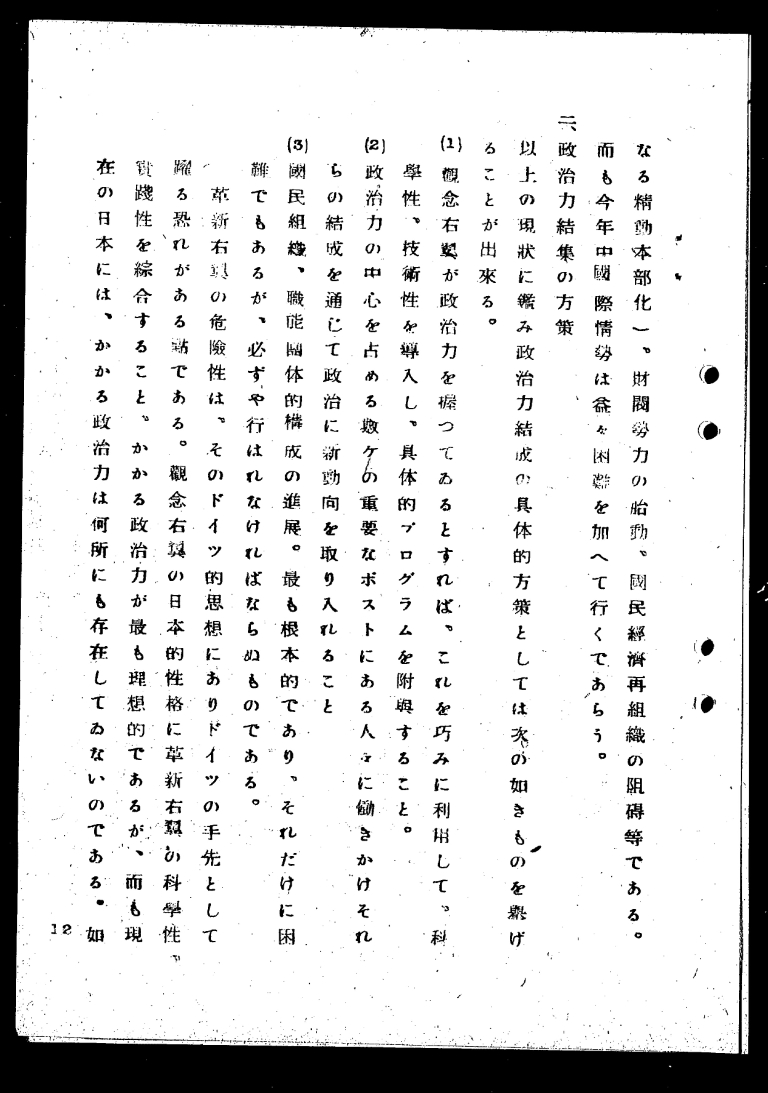 なる精動本部化)、財閥勢力の胎動、國民經濟再組織の阻碍等である。
而も今年中國際情勢は益々困難を加へて行くであらう。
二、政治力結集の方策
以上の現狀に鑑み政治力結成の具体的方策としては次の如きものを擧げ
ることが出來る。
(1)觀念右翼が政治力を握つてゐるとすれば、これを巧みに利用して、科
學性、技術性を導入し、具体的プログラムを附與すること。
(2)政治力の中心を占める數ケの重要なポストにある人々に働きかけそれ
らの結成を通じて政治に新動向を取り入れること
(3)國民組織、職能團体的構成の進展。最も根本的であり、それだけに困
難でもあるが、必ずや行はれなければならぬものである。
革新右翼の危險性は、そのドイツ的思想にありドイツの手先として
躍る恐れがある點である。觀念右翼の日本的性格に革新右翼の科學性、
實踐性を綜合すること、かかる政治力が最も理想的であるが、而も現
在の日本には、かかる政治力は何所にも存在してゐないのである。如
12